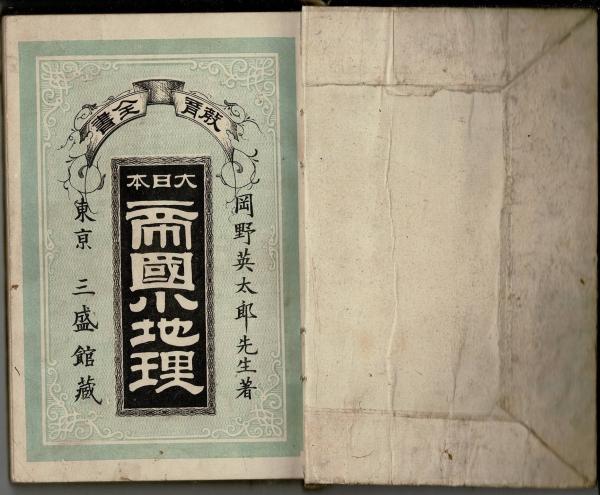 教育全書
岡野英太郎先生著
大日本
帝國小地理
東亰 三盛館藏